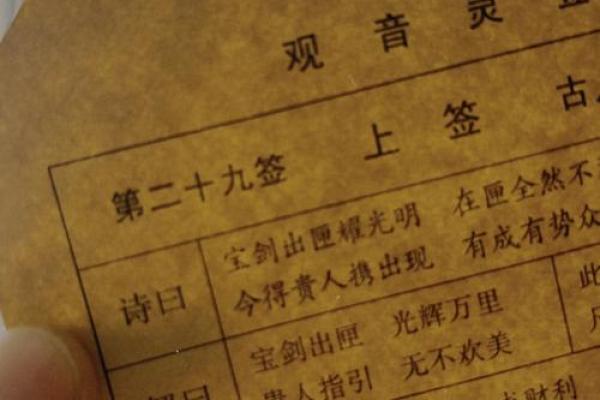 观音灵
第二十九签 上签 古
诗曰
宝剑出匣耀光明 在匣全然不
今得贵人携出现 有成有势众
宝剑出匣 光辉万里 此
贵人指引 无不欢美 凡
曰
财利